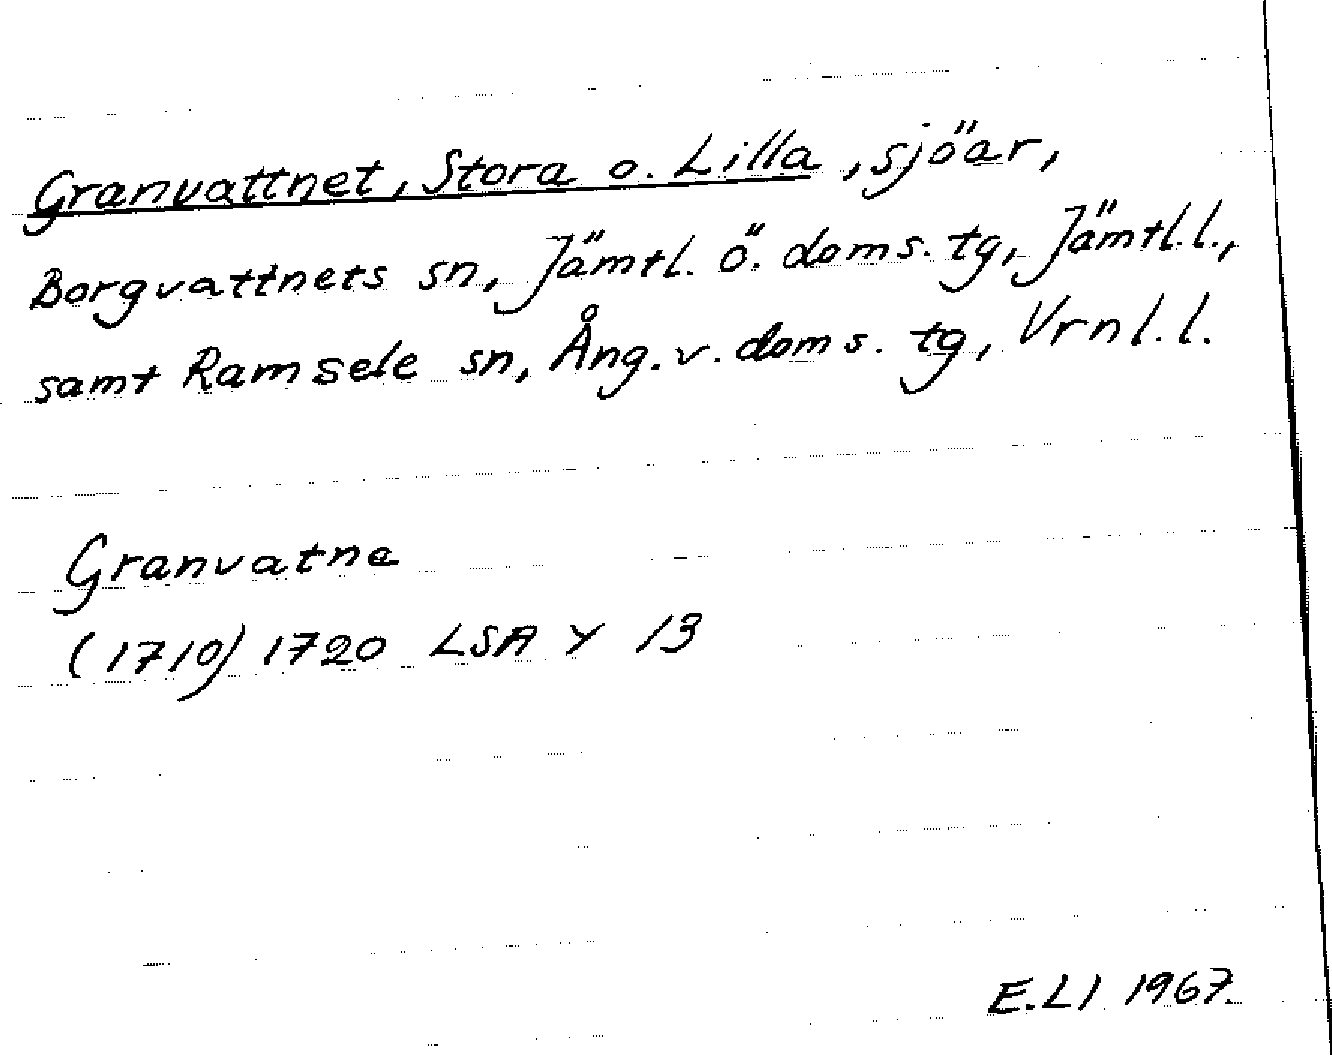 Granvattnet, Stora o. Lilla, sjöar,
Borgvattnets sn, Jämtl. ö. doms. tg, Jämtl.l.,
samt Ramsele sn, Ång. v. doms. tg, Vrnl.l.
Granvatne
(1710) 1720 LSA Y 13
E.L1 1967